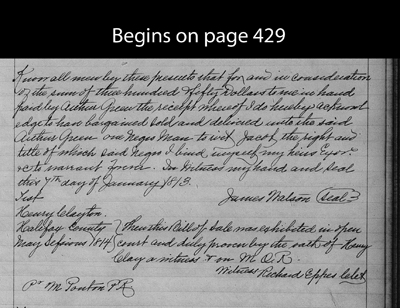 Begins on page 429
Know all men by these presents that for and in consideration
of the sum of three hundred & fifty Dollars to me in hand
paid by Arthur Green the receipt whereof I do hereby acknowl
edge to have bargained sold and delivered unto the said
Arthur Green one Negro Man to wit Jacob, the right and
title of which said Negro I bind myself my heirs Exors
&c to warrant &
In Witness my hand and seal
this 7th day of January 1813.
Test James Matson (seal)
Henry Clayton.
Halifax County } Then this Bill of Sale was exhibited in open
May Sessions 1814 } court and duly proven by the oath of Henry
Clay a witness & on M. O. R.
Witness Richard Eppes Clk
Pr M. Ponton P R